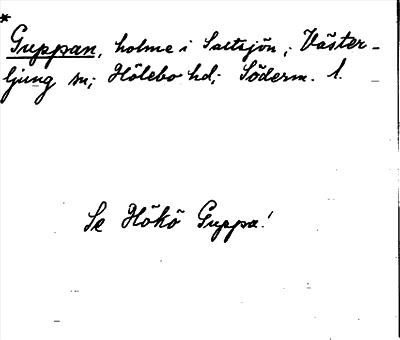 *
Guppan, holme i Saltsjön; Väster-
ljung sn; Hölebo hd; Söderm. l.
Se Hökö Guppa!